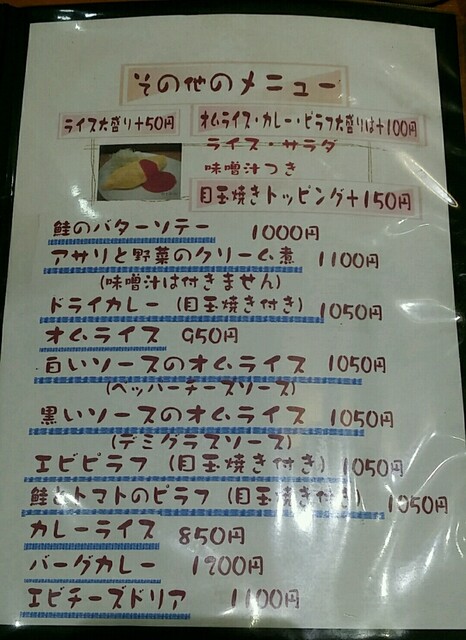 その他のメニュー
ライス大盛り+50円
オムライス・カレー・ピラフ大盛りは+100円
ライス・サラダ
味噌汁つき
目玉焼きトッピング+150円
鮭のバターソテー 1000円
アサリと野菜のクリーム煮 1100円
(味噌汁は付きません)
ドライカレー (目玉焼き付き) 1050円
オムライス 950円
白いソースのオムライス 1050円
(ペッパーチーズソース)
黒いソースのオムライス 1050円
(デミグラスソース)
エビピラフ (目玉焼き付き) 1050円
鮭とトマトのピラフ (目玉焼き付き) 1050円
カレーライス 850円
バーグカレー 1200円
エビチーズドリア 1100円